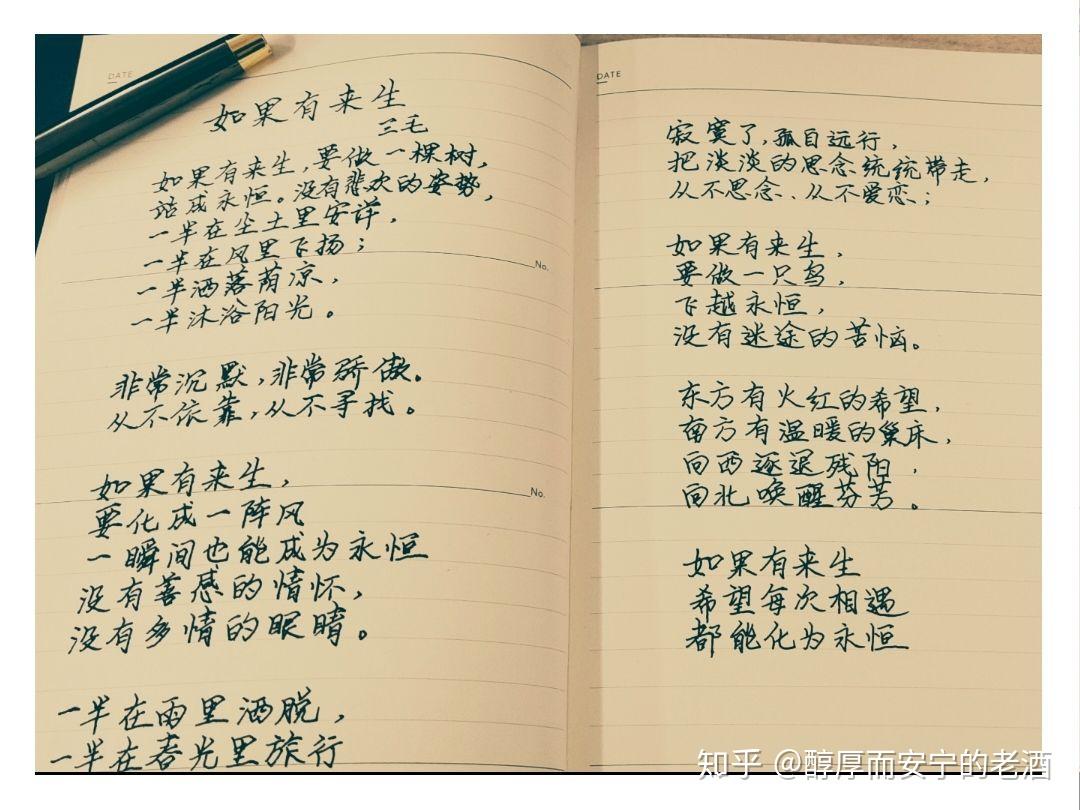 DATE
如果有来生
三毛
如果有来生,要做一棵树,
站成永恒。没有悲欢的姿势,
一半在尘土里安详,
一半在风里飞扬;
一半洒落荫凉,
一半沐浴阳光。
非常沉默,非常骄傲。
从不依靠,从不寻找。
如果有来生,
要化成一阵风
一瞬间也能成为永恒
没有善感的情怀,
没有多情的眼睛。
一半在雨里洒脱,
一半在春光里旅行
No.
No.
DATE
寂寞了,孤自远行,
把淡淡的思念统统带走,
从不思念、从不爱恋;
如果有来生,
要做一只鸟,
飞越永恒,
没有迷途的苦恼。
东方有火红的希望,
南方有温暖的巢床,
向西逐退残阳,
向北唤醒芬芳。
如果有来生
希望每次相遇
都能化为永恒
知乎 @醇厚而安宁的老酒